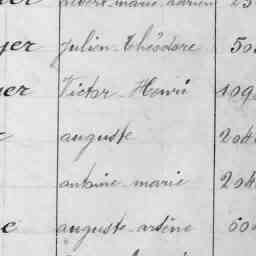 albert marie adrien
yer Julien Théodore 50
yer Victor Henri 109
auguste 204
antoine marie 204
auguste arsène 60